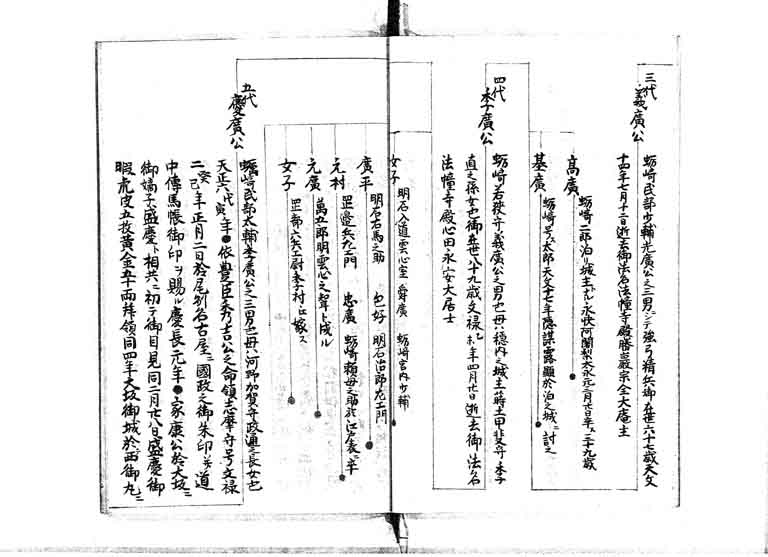 三代
義廣公
蛎崎民部少輔光廣公之三男ニシテ強弓精兵御在世六十七歳天文
十四年七月十二日逝去御法名法幢寺殿勝巖宗全大庵主
高廣
蛎崎二郎泊リ城主
基廣
蛎崎号太郎天文十七年隠謀露顕於泊之城ニ討之
四代
季廣公
蛎崎若狭守義廣公之男也母ハ穏内之城主蒋土甲斐守季子
直之孫女也御在世八十九歳文禄
年四月廿日逝去御法名
法幢寺殿心田永安大居士
女子
明石入道雲心室
舜廣
蛎崎宮内少輔
廣平
明石右馬之助
明石治部左エ門
元村
忠廣
元廣
萬五郎明雲心之聟ト成ル
女子
五代
慶廣公
蛎崎民部太輔季廣公之三男也母ハ河野加賀守政通之長女也
天正六戊寅年依豊臣秀吉公之命領志摩守号文禄
二癸巳年正月二日於尾州名古屋ニ國政之御朱印并道
中傳馬帳御印ヲ賜ル慶長元年家康公於大坂ニ
御嫡子盛慶ト相共ニ初テ御目見同二月廿八日盛慶御
暇虎皮五枚黄金五十両拝領同四年大坂御城於西御丸ニ